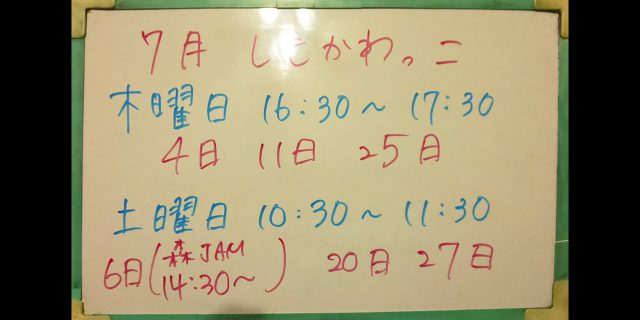 7月 しもかわっこ
木曜日 16:30〜 17:30
4日 11日 25日
土曜日 10:30〜 11:30
6日(森JAM 14:30〜) 20日 27日